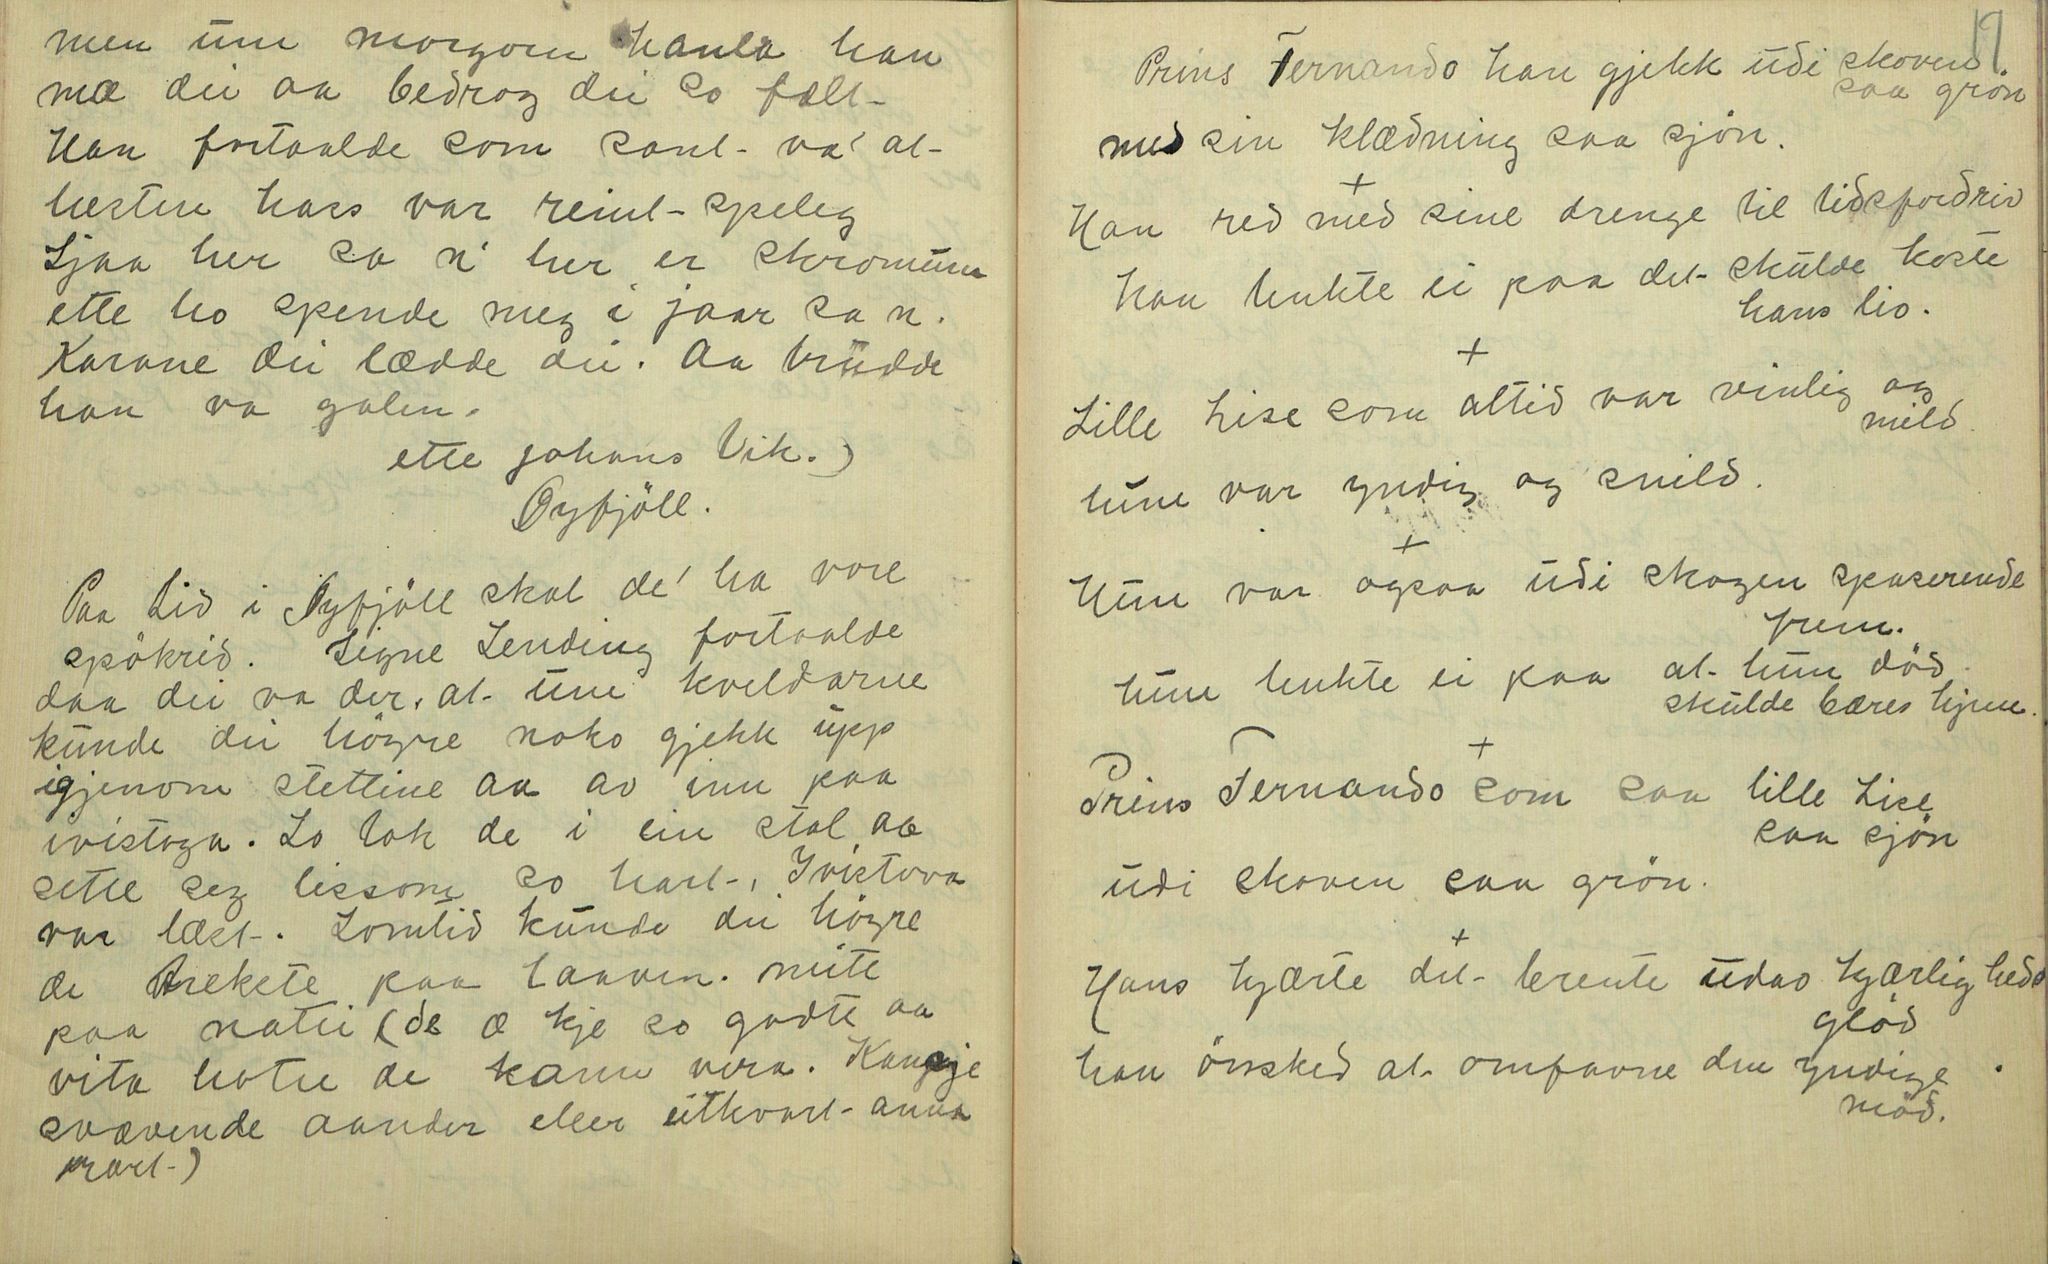 men um morgoen hanla han
mæ dei aa bedrog dei so fælt
Han fortaalde som sant va' at
hesten hass var reint speleg
Sjaa her sa n' her er skromun
ette ho spende meg i jaar sa n.
Karane dei lædde dei. Aa trudde
han va galen.
ette Johans Vik.)
Øyfjöll.
Paa Lid i Øyfjöll skal de' ha vore
spökrid. Signe Lending fortaalde
daa dei va der, at um kveldarne
kunde dei högre noko gjekk upp
igjenom stettine aa av inn paa
ivistoga. So tok de i ein stol aa
sette seg lissom so hart, Ivistova
var læst. Somtid kunde dei högre
de brekete paa laaven. mitt
paa natti (de æ kje so godt aa
vita hotte de kann vera. Kanskje
svævende aander eller eitkvart anna
rart)
19
Prins Fernando han gjekk udi skoven
saa grön
med sin klædning saa sjön.
+
Han red med sine drenge til tidsfordriv
han tenkte ei paa det skulde koste
hans liv.
+
Lille Lise som altid var venlig og
mild
hun var yndig og snild.
+
Hun var ogsaa udi skogen spaserende
frem.
hun tenkte ei paa at hun död
skulde bæres hjem.
+
Prins Fernando som saa lille Lise
saa sjön
udi skoven saa grön.
+
Hans hjærte det brente udav kjærligheds
glöd
han önsked at omfavne den yndige
möd.